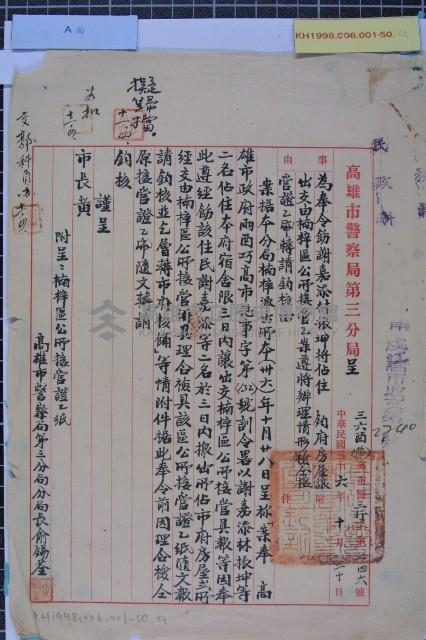 A面
KH1998.C06.001-50.
擬歸檔
文郭科員
民政科
高雄市警察局第三分局呈
事由
為奉令飭謝嘉添林振坤將佔住 鈞府房屋讓
出交由楠梓區公所接管乙案遵將辦理情形檢全接
管證乙紙轉請鈞核由
中華民國三十六年十月三十日
案據本分局楠梓派出所本卅六年十月廿八日呈稱「案奉 高
雄市政府兩酉巧高市 事字第 號訓令畧以謝嘉添林振坤等
二名佔住本府宿舍限三日內讓出交楠梓區公所接管具報等因奉
此遵經飭該住民謝嘉添等二名於三日內搬出所佔市府房屋
經交由楠梓區公所接管 理合檢具該區公所接管證乙紙隨文報
請鈞核並乞層轉市府核備」等情附件據此奉令前因理合檢全
原接管證乙紙隨文轉請
鈞核
謹呈
市長黃
附呈:楠梓區公所接管證乙紙
高雄市警察局第三分局分局長俞錫荃
KH1998.006.001-50.